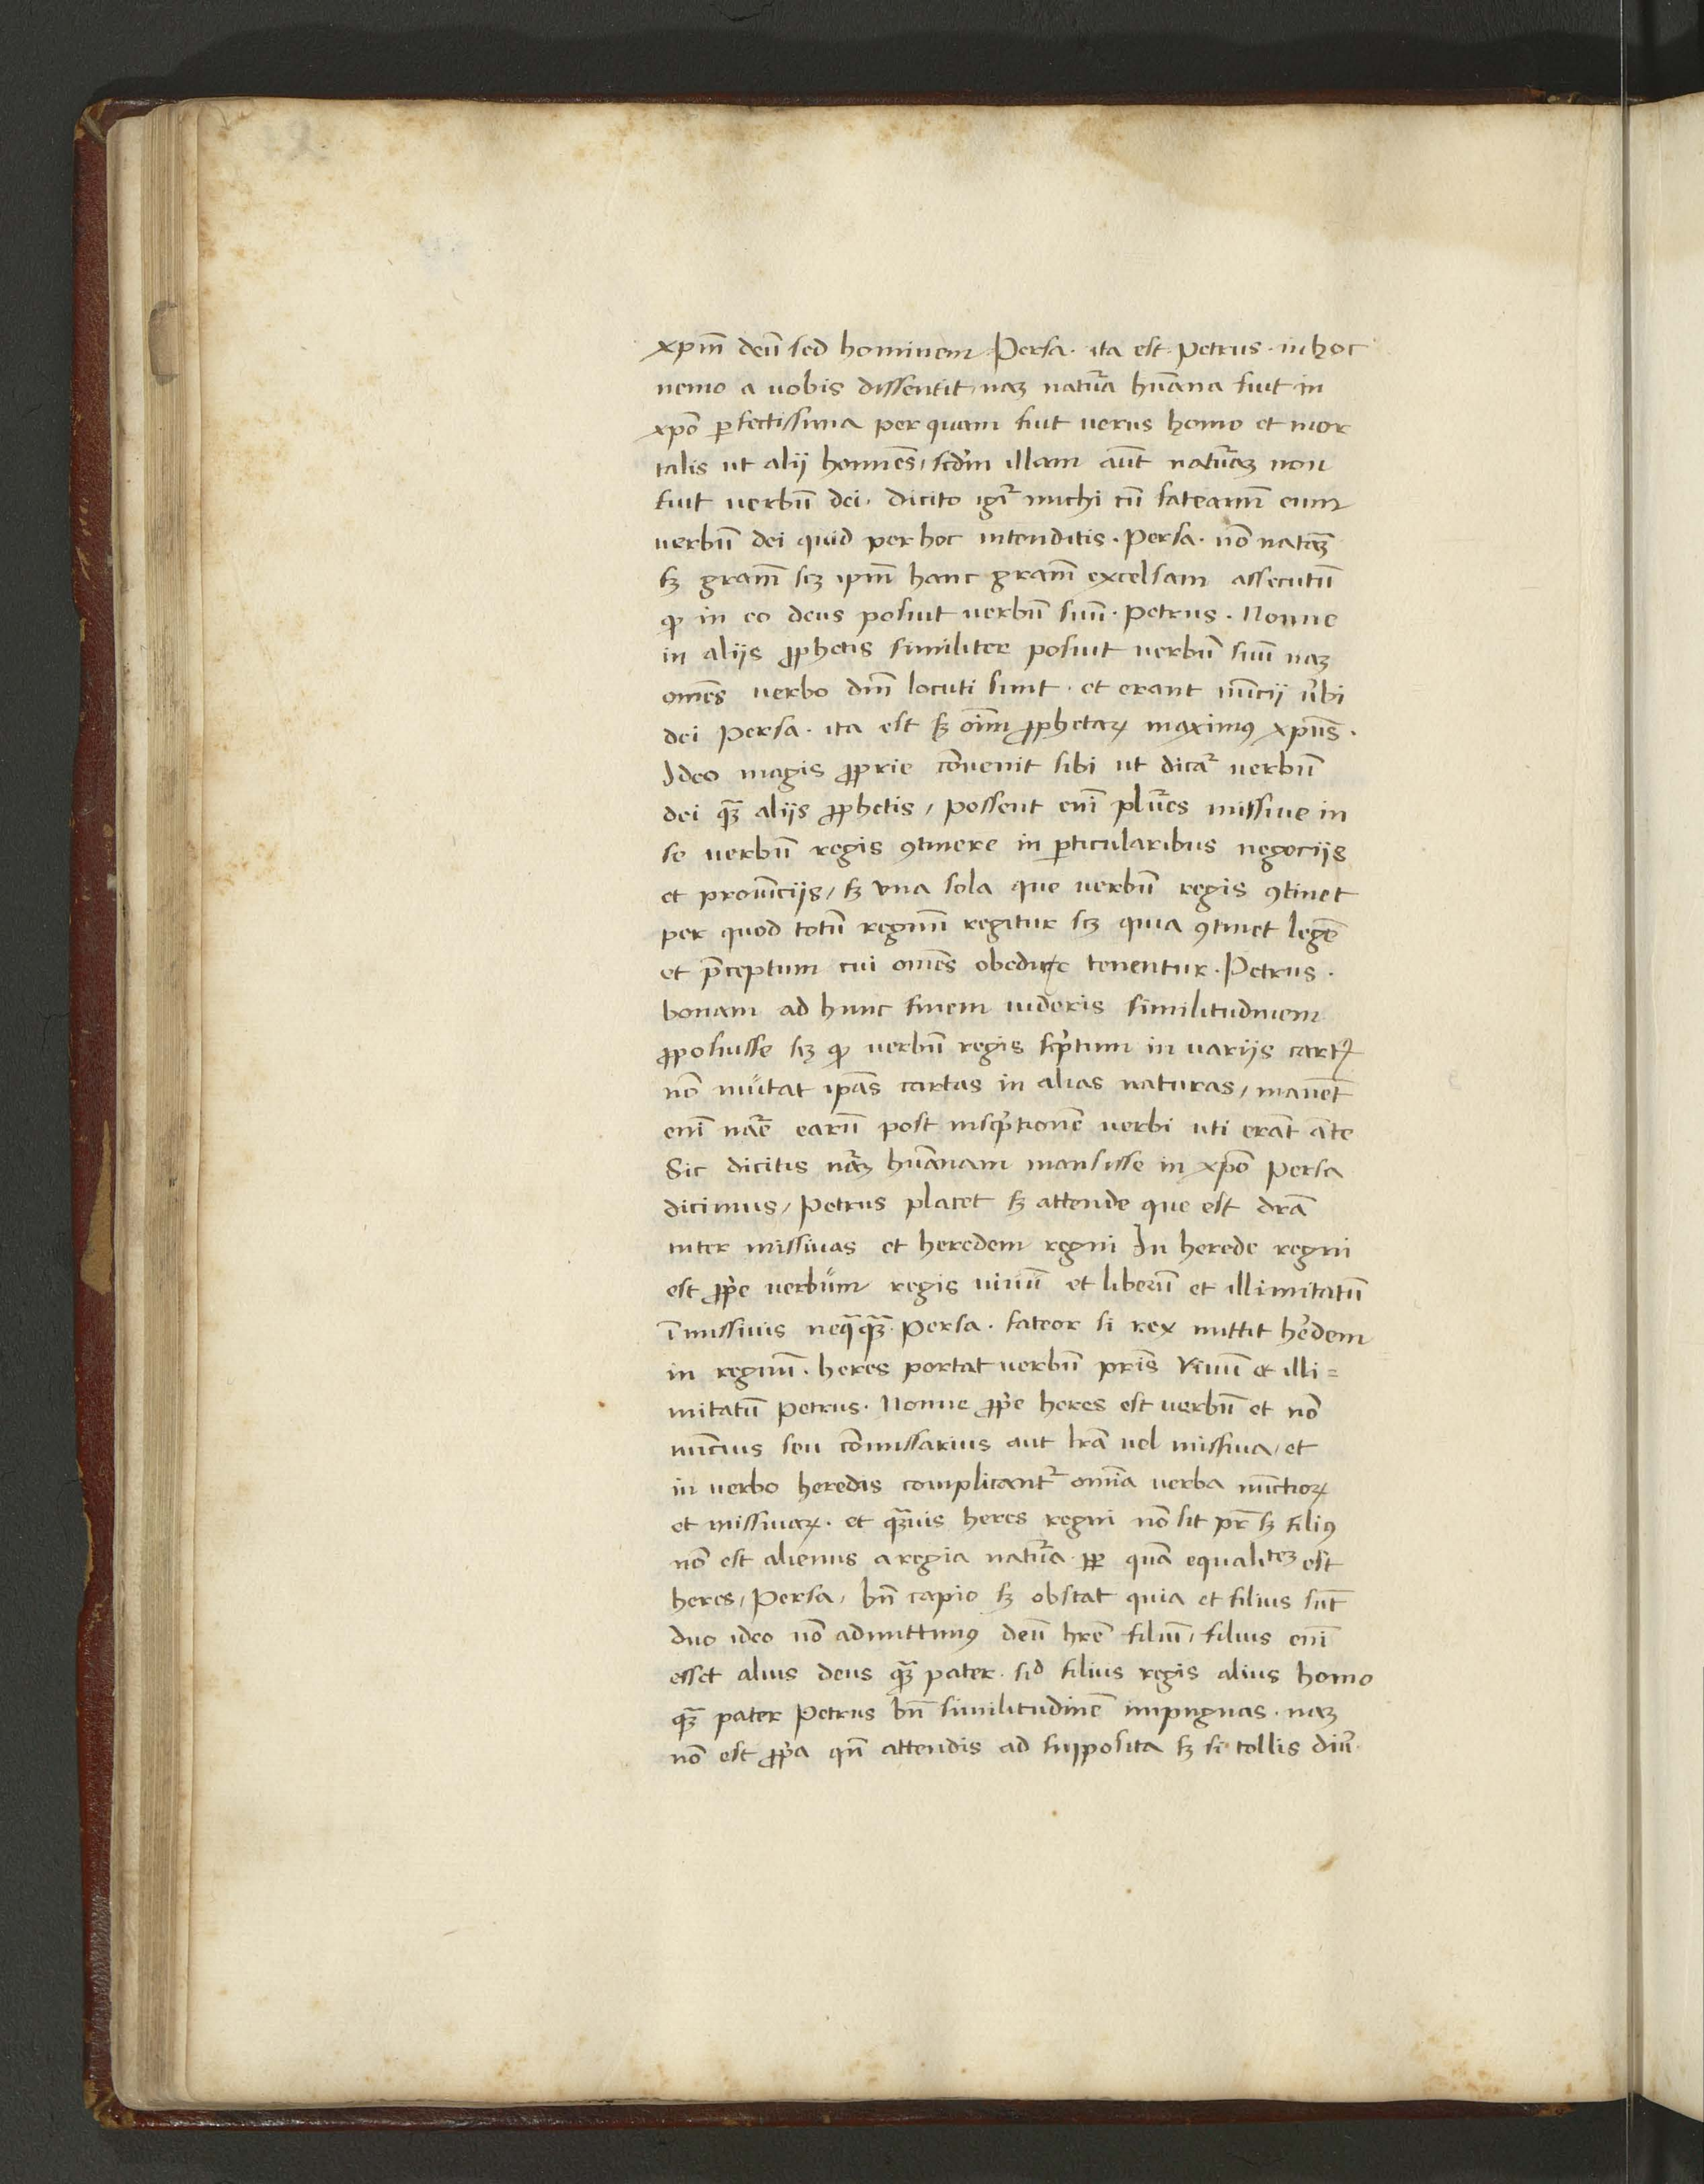 xpm̄ deū sed hominem Persa. ita est. Petrus. in hoc
nemo a vobis dissentit, naꝫ natura hūana fuit in
xpo ꝑfectissima per quam fuit verus homo et mor
talis ut alij homines, scd̄m illam aūt naturaꝫ non
fuit verbū dei. dicito igr̄ michi cū fateamī eum
verbū dei quid per hoc intenditis. Persa. nō naturaꝫ
sꝫ gram̄ scꝫ ipm̄ hanc gram̄ excelsam assecutū
ꝙ in eo deus posuit verbū suū. Petrus. Nonne
in alijs ꝓphetis similiter posuit verbū suū naꝫ
om̄es verbo dm̄ locuti sunt. et erant nūcij ūbi
dei Persa. ita est sꝫ oīm ꝓphetaꝝ maximꝰ xpūs.
Ideo magis ꝓprie cōvenit sibi ut dicat̄ verbū
dei qꝫ alijs ꝓphetis, possent enī plures missive in
se verbū regis ꝯtinere in ꝑticularibus negocijs
et prouīcijs, sꝫ una sola que verbū regis ꝯtinet
per quod totū regnū regitur scꝫ quia ꝯtinet legē
et p̄ceptum cui om̄es obedire tenentur. Petrus.
bonam ad hunc finem videris similitudinem
ꝓposuisse scꝫ ꝙ verbū regis scptum in varijs cartꝭ
nō mutat ipas cartas in alias naturas, manēt
enī nāe earū post inscptionē verbi uti erāt āte
Sic dicitis nāꝫ hūanam mansisse in xpo Persa
dicimus, Petrus placet sꝫ attende que est dr̄a
inter missivas et heredem regni In herede regni
est ꝓpe verbum regis vivū et liberū et illimitatū
ī missivis neqqꝫ. Persa. fateor si rex mittit hedem
in regnū. heres portat verbū pris vivū et illi=
mitatū Petrus. Nonne ꝓpe heres est verbū et nō
nūcius seu cōmissarius aut lrā vel missiva, et
in verbo heredis complicant̄ om̄ia verba nūctioꝝ
et missivaꝝ. et qꝫvis heres regni nō sit pr̄ sꝫ filiꝰ
nō est alienus a regia natura ꝓpt quā equalitꝫ est
heres, Persa, bn̄ capio sꝫ obstat quia et filius sūt
duo ideo nō admittimꝰ deū hre filiū, filius enī
esset alius deus qꝫ pater. sic filius regis alius homo
qꝫ pater Petrus bn̄ similitudinē impugnas. naꝫ
nō est ꝓpa qn̄ attendis ad supposita sꝫ si tollis diū.